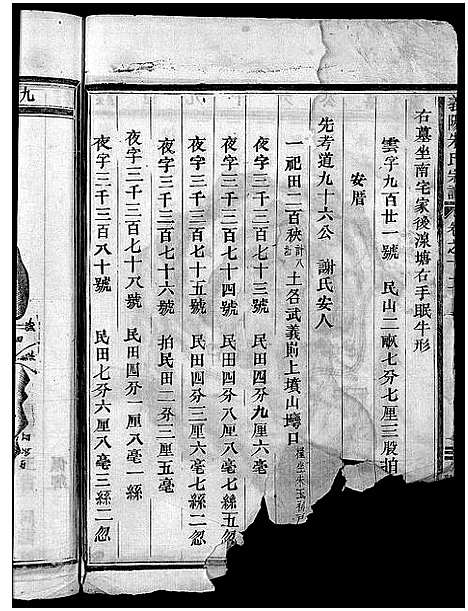 義門朱氏宗譜 卷之
右墓坐南宅家後湶塘右手眠牛形
雲字九百廿一號 民山二畝七分七厘三股拍
安厝
先考道九十六公 謝氏安人
一祀田二百秧計八 土名武義前上墳山塆口
夜字三千三百七十三號 民田四分九厘六毫
夜字三千三百七十四號 民田四分八厘八毫七絲五忽
夜字三千三百七十五號 民田四分三厘六毫七絲二忽
夜字三千三百七十六號 拍民田二分三厘五毫
夜字三千三百七十八號 民田四分一厘八毫一絲
夜字三千三百八十號 民田七分六厘八毫三絲二忽
九